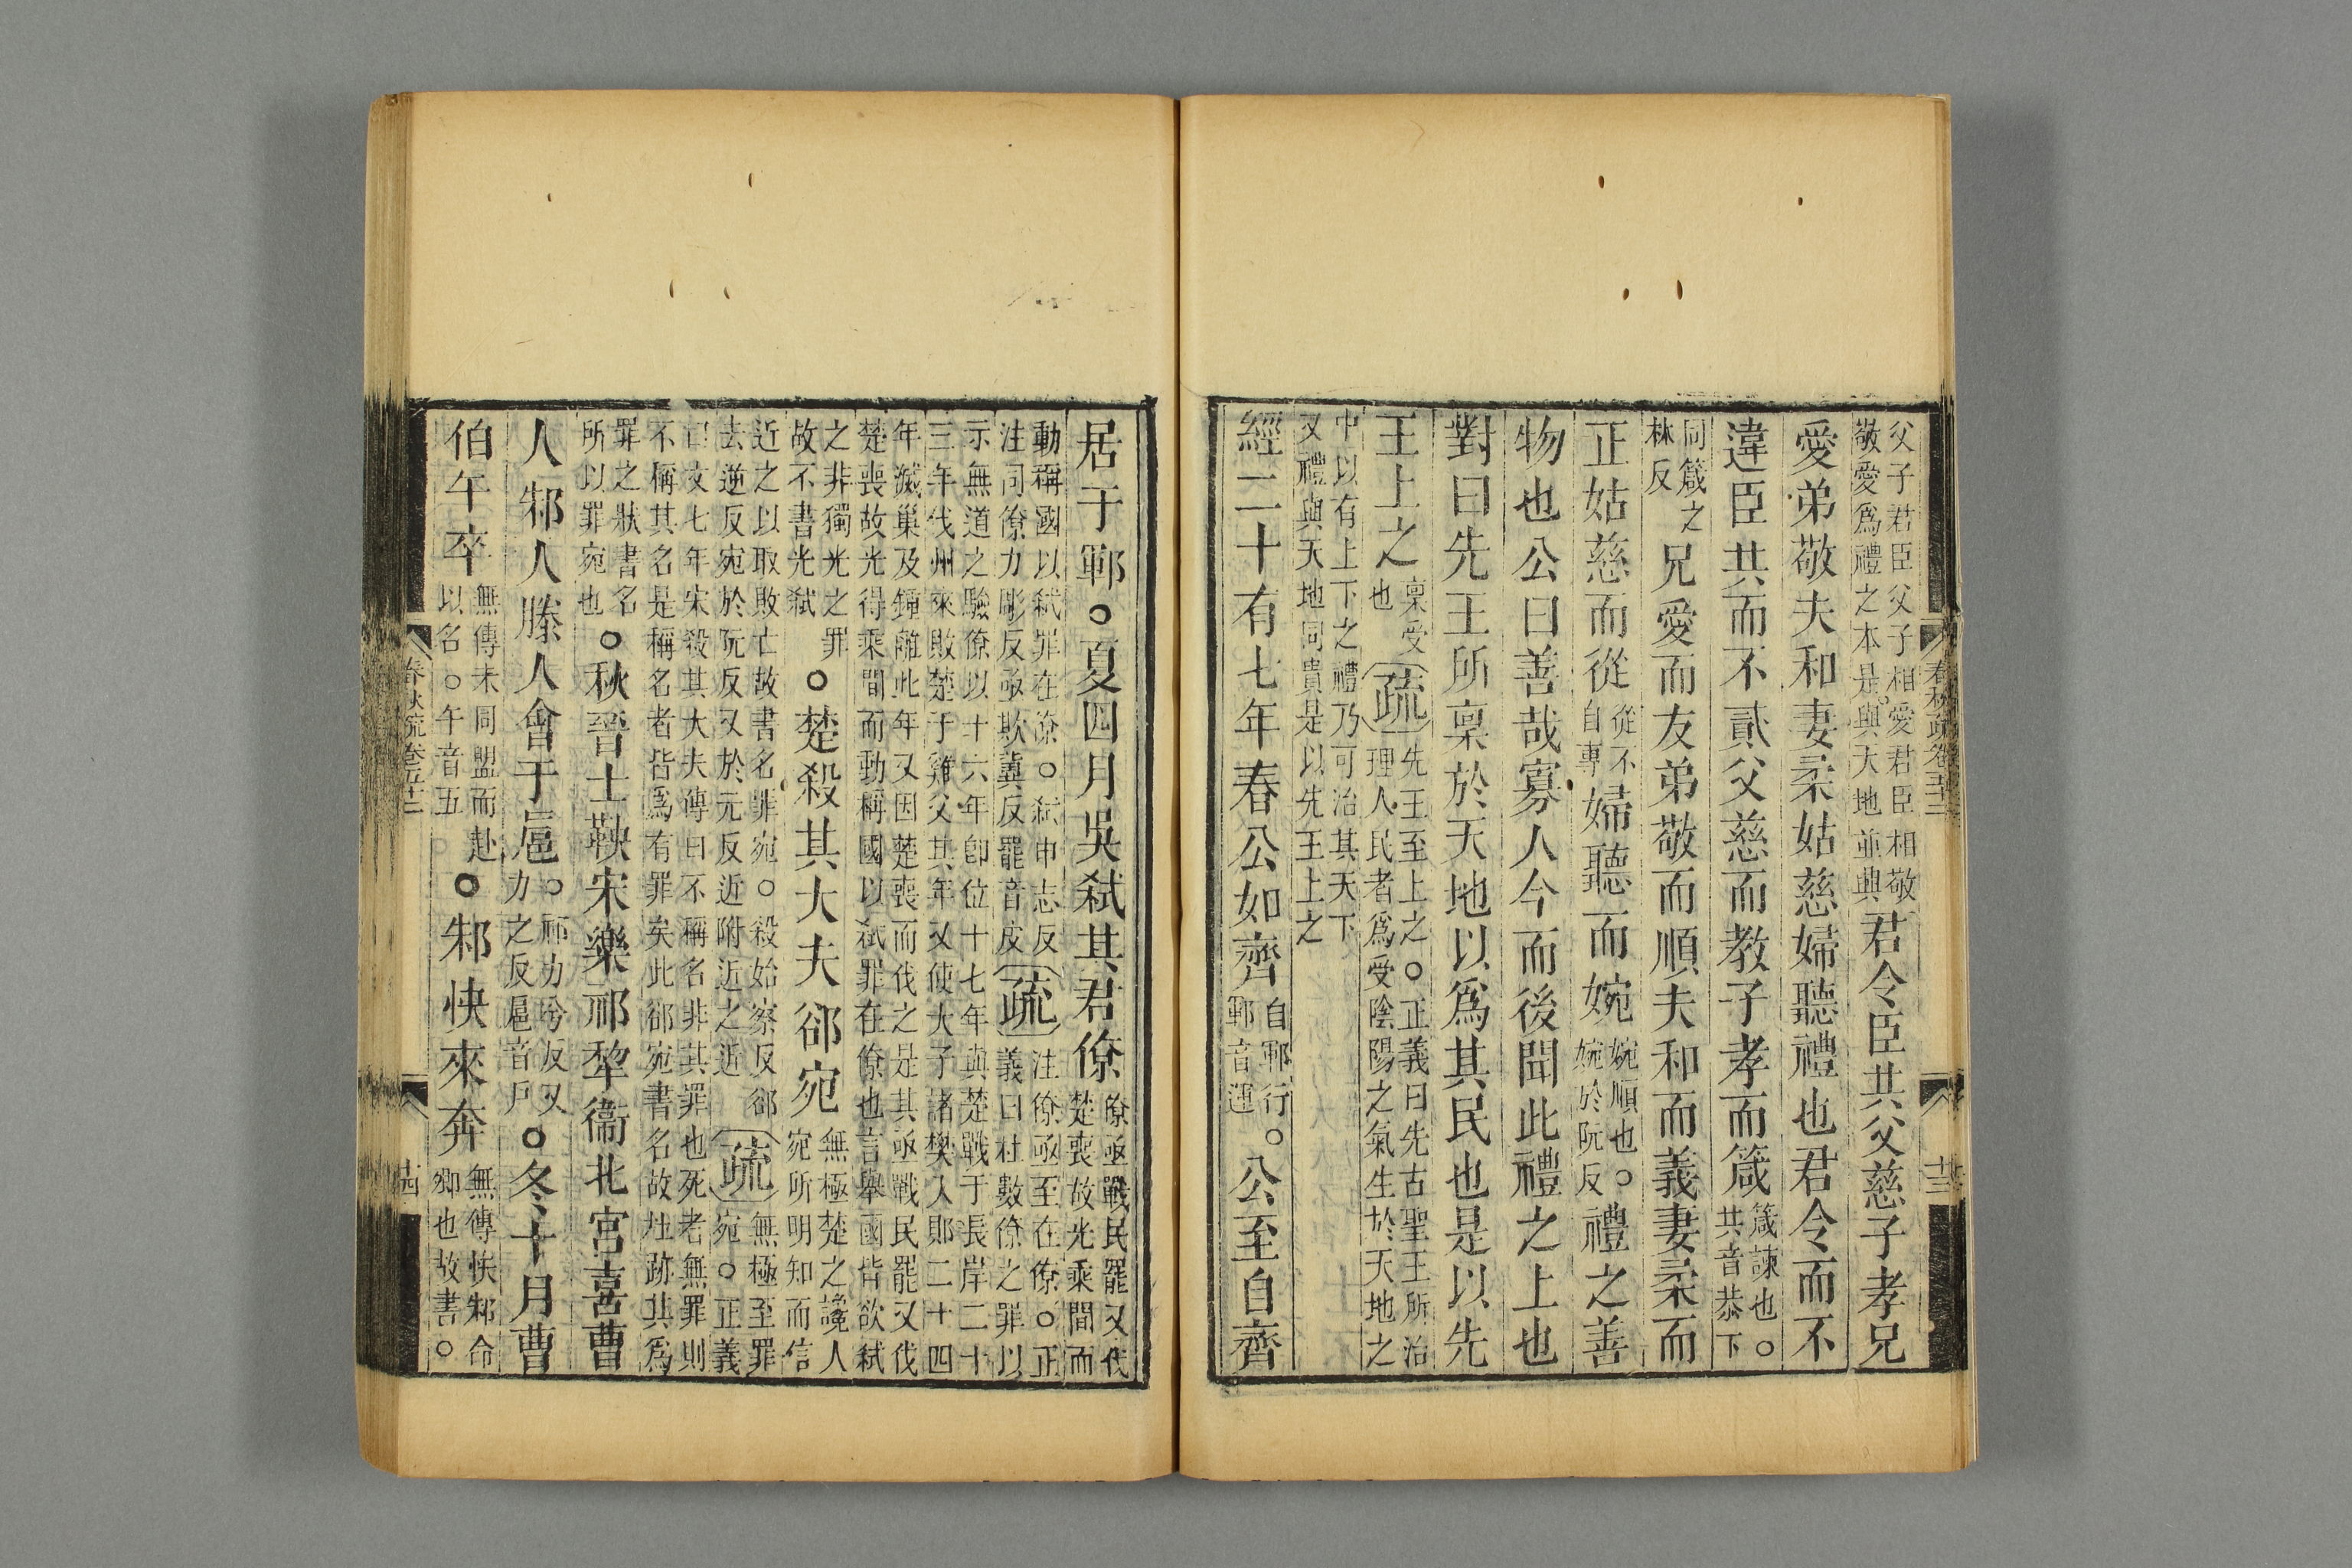 父子君臣父子相愛君臣相敬
敬愛爲禮之本是與天地並興
君令臣共父慈子孝兄
愛弟敬夫和妻柔姑慈婦聽禮也君令而不
違臣共而不貳父慈而教子孝而箴
箴諫也○
共音恭下
同箴之
林反
兄愛而友弟敬而順夫和而義妻柔而
正姑慈而從
從不
自專
婦聽而婉
婉順也○
婉於阮反
禮之善
物也公曰善哉寡人今而後聞此禮之上也
對曰先王所稟於天地以爲其民也是以先
王上之
稟受
也
疏
先王至上之○正義曰先古聖王所治
理人民者爲受陰陽之氣生於天地之
中以有上下之禮乃可治其天下
又禮與天地同貴是以先王上之
經二十有七年春公如齊
自鄆行○
鄆音運
公至自齊
居于鄆○夏四月吳弒其君僚
僚亟戰民罷又伐
楚喪故光乘間而
動稱國以弒罪在僚○弒申志反
注同僚力彫反亟欺冀反罷音皮
疏
注僚亟至在僚○正
義曰杜數僚之罪以
示無道之驗僚以十六年卽位十七年與楚戰于長岸二十
三年伐州來敗楚于雞父其年又使大子諸樊入郹二十四
年滅巢及鍾離此年又因楚喪而伐之是其亟戰民罷又伐
楚喪故光得乘間而動稱國以弒罪在僚也言舉國皆欲弒
之非獨光之罪
故不書光弒
○楚殺其大夫郤宛
無極楚之讒人
宛所明知而信
近之以取敗亡故書名罪宛○殺始察反郤
去逆反宛於阮反又於元反近附近之近
疏
無極至罪
宛○正義
曰文七年宋殺其大夫傳曰不稱名非其罪也死者無罪則
不稱其名是稱名者皆爲有罪矣此郤宛書名故杜跡其爲
罪之狀書名
所以罪宛也
○秋晉士鞅宋樂祁犂衞北宮喜曹
人邾人滕人會于扈
○祁力兮反又
力之反扈音戶
○冬十月曹
伯午卒
無傳未同盟而赴
以名○午音五
○邾快來奔
無傳快邾命
卿也故書○